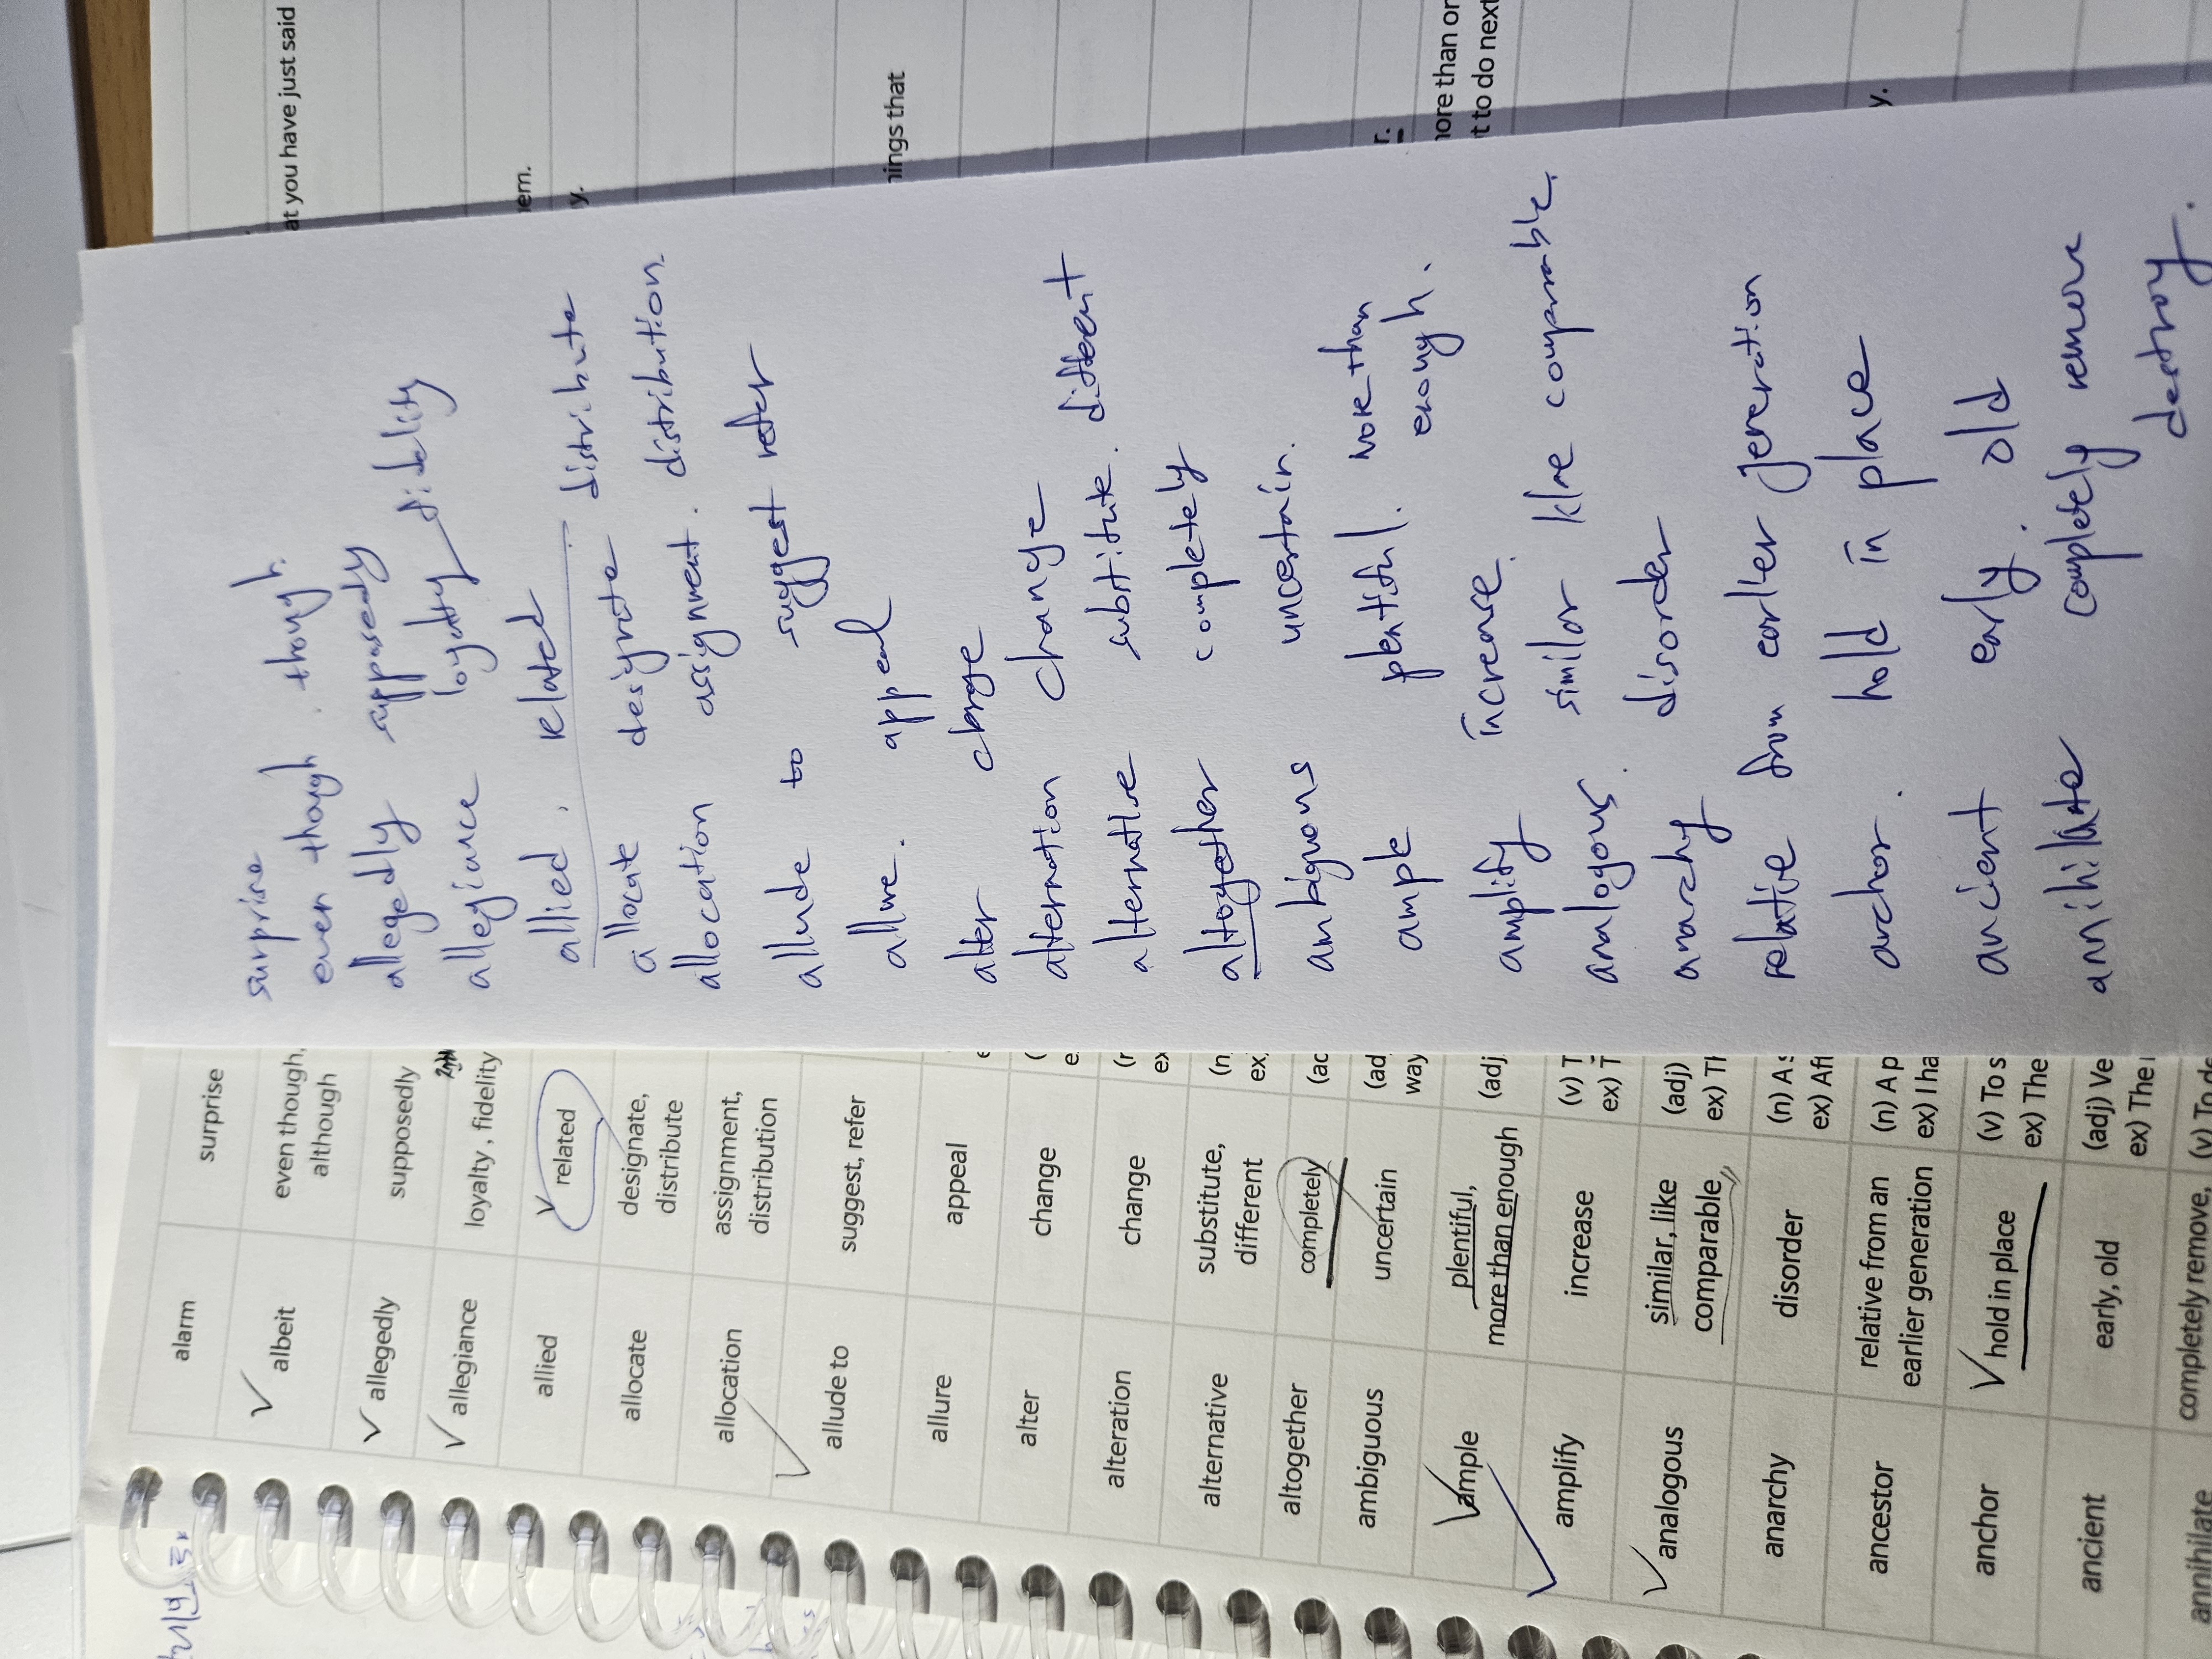 alarm surprise
albeit even though,
although
allegedly supposedly
allegiance loyalty, fidelity
allied related
allocate designate,
distribute
allocation assignment,
distribution
allude to suggest, refer
allure appeal
alter change
alteration change
alternative substitute,
different
altogether completely
ambiguous uncertain
ample plentiful,
more than enough
amplify increase
analogous similar, like
comparable
anarchy disorder
ancestor relative from an
earlier generation
anchor hold in place
ancient early, old
annihilate completely remove,
(n
ex
(ac
(ad
way
(adj
(v) T
ex) T
(adj)
ex) Th
(n) A s
ex) Aft
(n) A p
ex) I ha
(v) To s
ex) The
(adj) Ve
ex) The
(v) To de
surprise
even though. though.
allegedly supposedly
allegiance loyalty fidelity
allied. related
allocate designate distribute
allocation assignment. distribution.
allude to suggest refer
allure. appeal
alter change
alternation change
alternative substitute. different
altogether completely
ambiguous uncertain.
ample plentiful. more than
enough.
amplify increase.
analogous. similar like comparable.
anarchy disorder
relative from earlier generation
archor. hold in place
ancient early. old
annihilate completely remove
destroy.
at you have just said
em.
y.
nings that
r.
nore than or
t to do next
y.